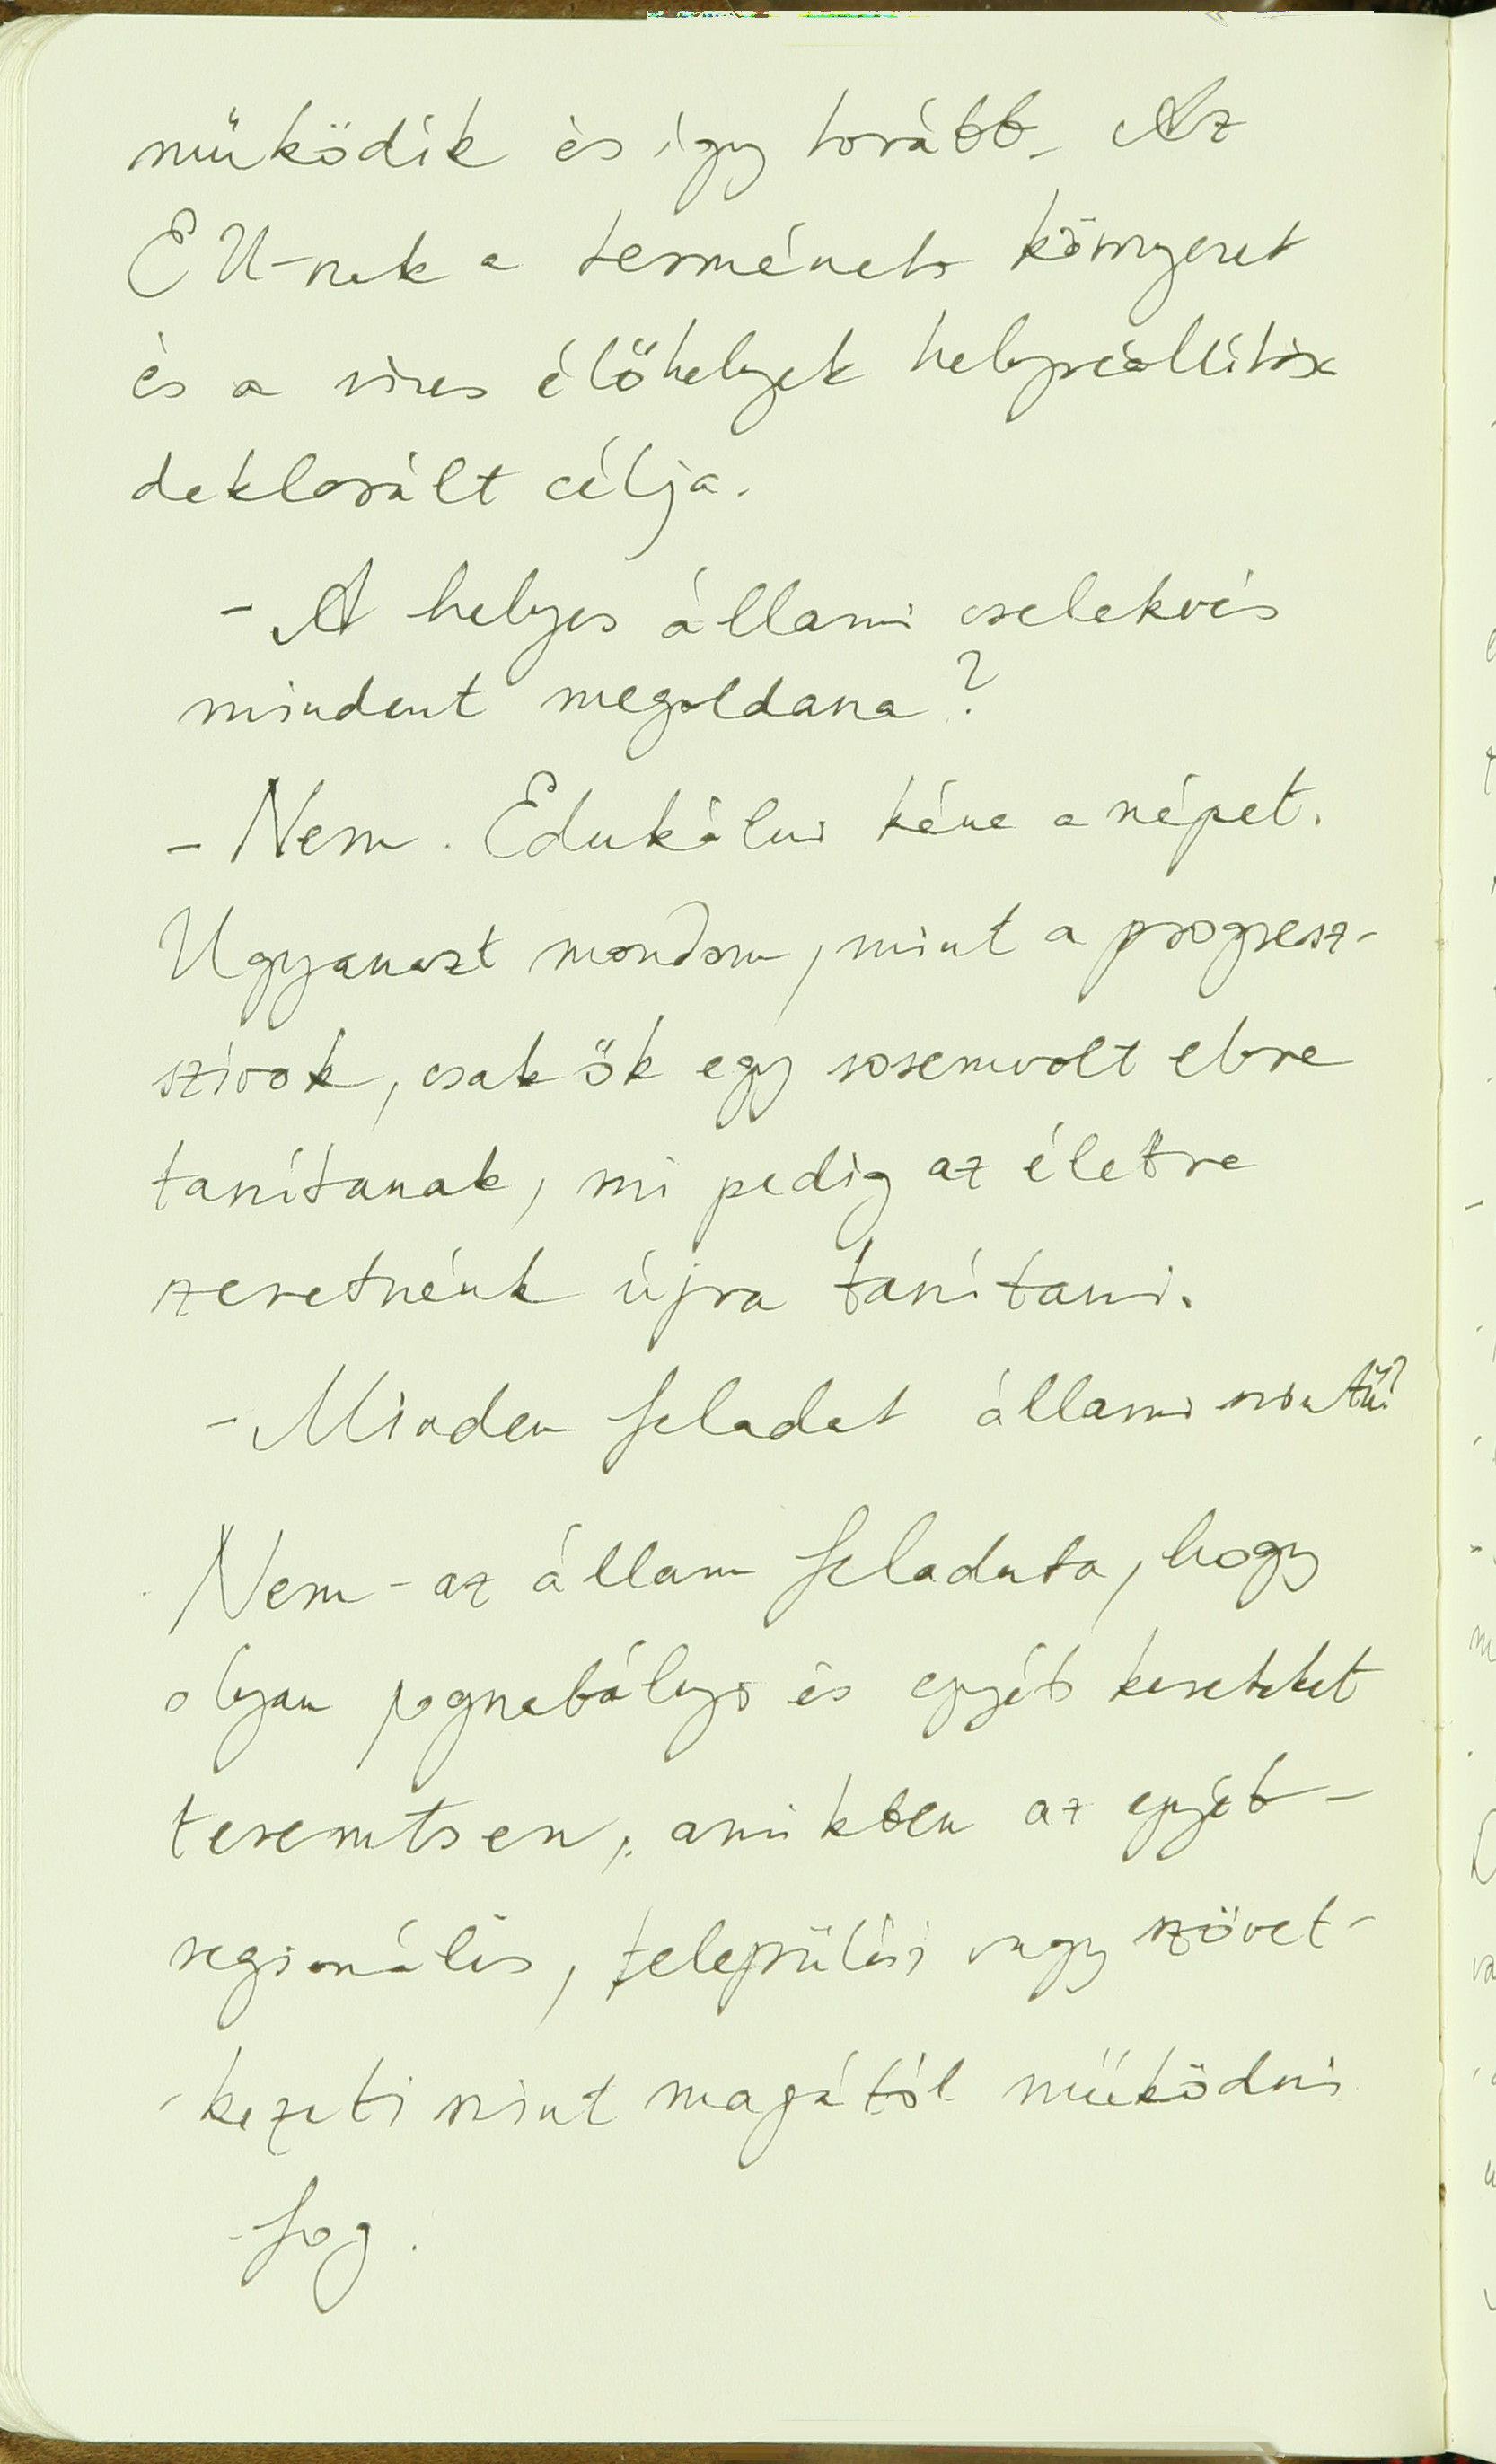 működik és így tovább. Az
EU-nak a természetes környezet
és a vizes élőhelyek helyreállítása
deklarált célja.
- A helyes állami cselekvés
mindent megoldana?
- Nem. Edukálni kéne a népet.
Ugyanazt mondom, mint a progresz-
szívok, csak ők egy sosemvolt
tanítanak, mi pedig az életre
szeretnénk újra tanítani.
- Minden feladat állami szintű?
Nem - az állam feladata, hogy
olyan jogszabályi és egyéb kereteket
teremtsen, amikben az egyéb -
regionális, települési vagy szövet-
kezeti szint magától működni
fog.